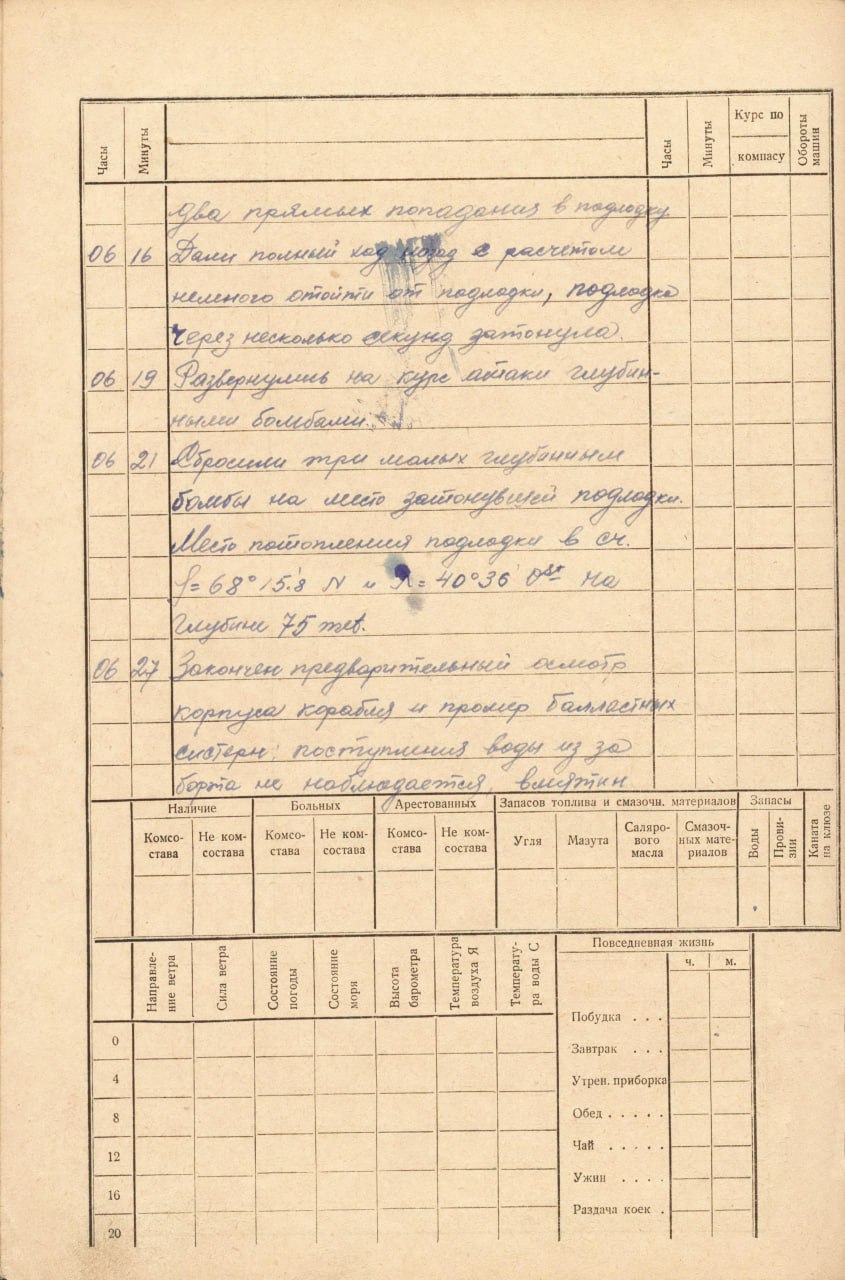 Часы Минуты Часы Минуты Курс по компасу Обороты машин
два прямых попадания в подлодку
06 16 Дали полный ход назад с расчетом
немного отойти от подлодки, подлодка
через несколько секунд затонула.
06 19 Развернулись на курс атаки глубин-
ными бомбами.
06 21 Сбросили три малых глубинным
бомбы на место затонувшей подлодки.
Место потопления подлодки в сч.
φ= 68° 15'.8 N и λ= 40°36' Ost на
глубине 75 met.
06 27 Закончен предварительный осмотр
корпуса корабля и промер балластных
систерн: поступления воды из за
борта не наблюдается, вмятин
Наличие Больных Арестованных Запасов топлива и смазочн. материалов Запасы Каната на клюзе
Комсо- Не ком- Комсо- Не ком- Комсо- Не ком- Угля Мазута Саляро- Смазоч- Воды Прови-
става состава става состава става состава вого ных мате- зии
масла риалов
Направле- Сила ветра Состояние Состояние Высота Температура Температу-
ние ветра погоды моря барометра воздуха Я ра воды С
Повседневная жизнь
ч. м.
0
4
8
12
16
20
Побудка . . .
Завтрак . . .
Утрен. приборка
Обед . . . . .
Чай . . . . .
Ужин . . . .
Раздача коек .